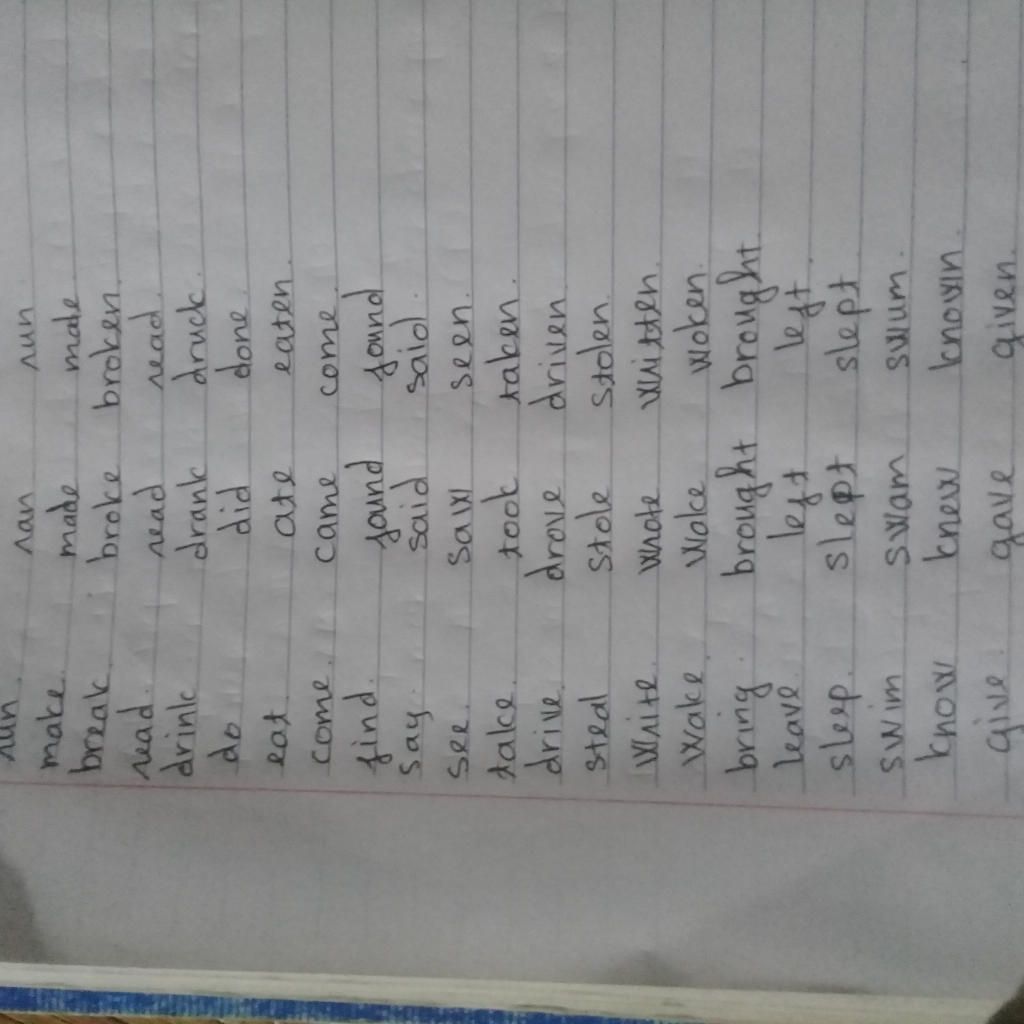 run ran run
make made made
break broke broken.
read read read.
drink drank druck.
do did done
eat ate eaten.
come came come.
find found found
say said said.
see saw seen.
take took taken.
drive drove driven
steal stole stolen.
write wrote written.
wake woke woken.
bring brought brought.
leave left left.
sleep slept slept
swim swam swum.
know knew known.
give gave given